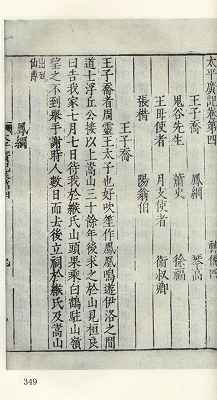 太平廣記卷第四
神仙四
王子喬　鳳綱　琴高
鬼谷先生　蕭史　徐福
王母使者　月支使者　衛叔卿
張楷　陽翁伯
王子喬
王子喬者周靈王太子也好吹笙作鳳凰鳴遊伊洛之間
道士浮丘公接以上嵩山三十餘年後求之於山見桓良
曰告我家七月七日待我於緱氏山頭果乘白鶴駐山嶺
望之不到舉手謝時人數日而去後立祠於緱氏及嵩山
出列仙傳
鳳綱
349